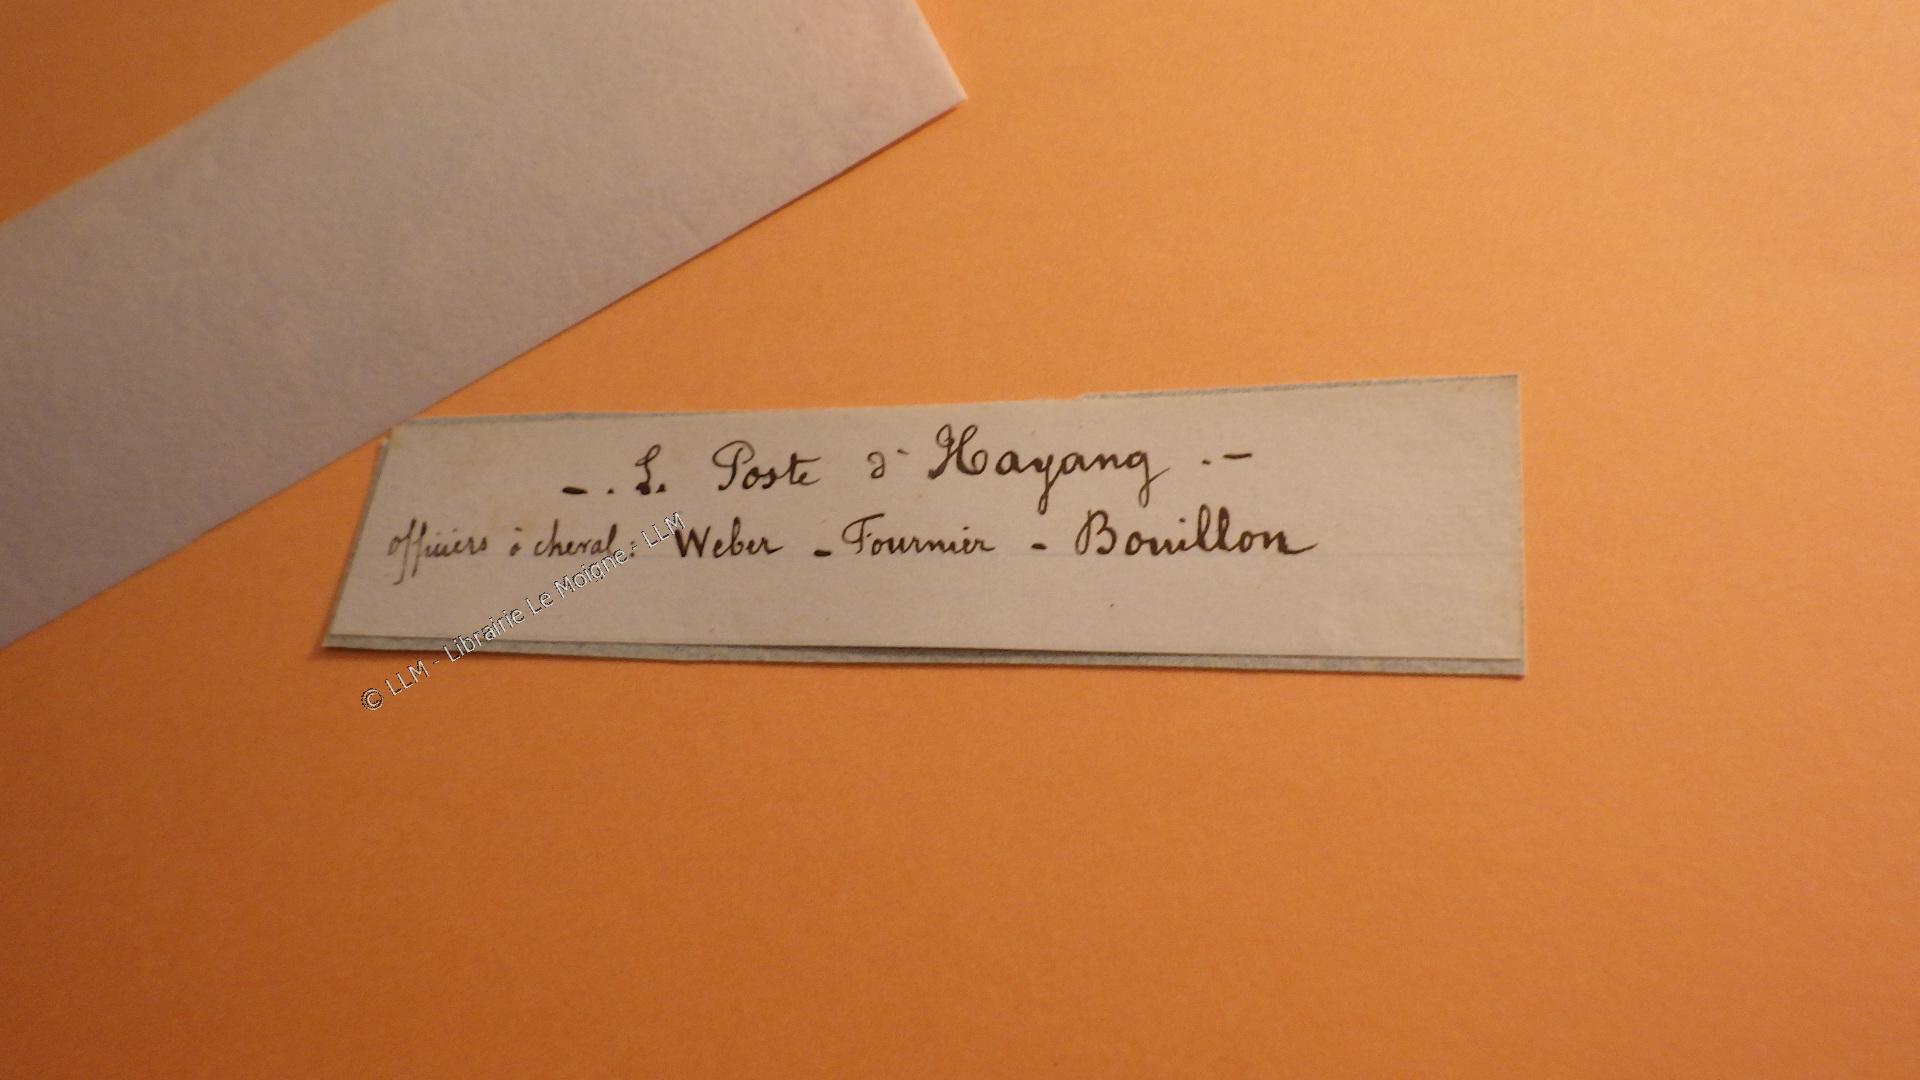 -. L. Poste d'Hayang .-
officiers à cheval: Weber - Fournier - Bouillon
© LLM - Librairie Le Moigne - LLM